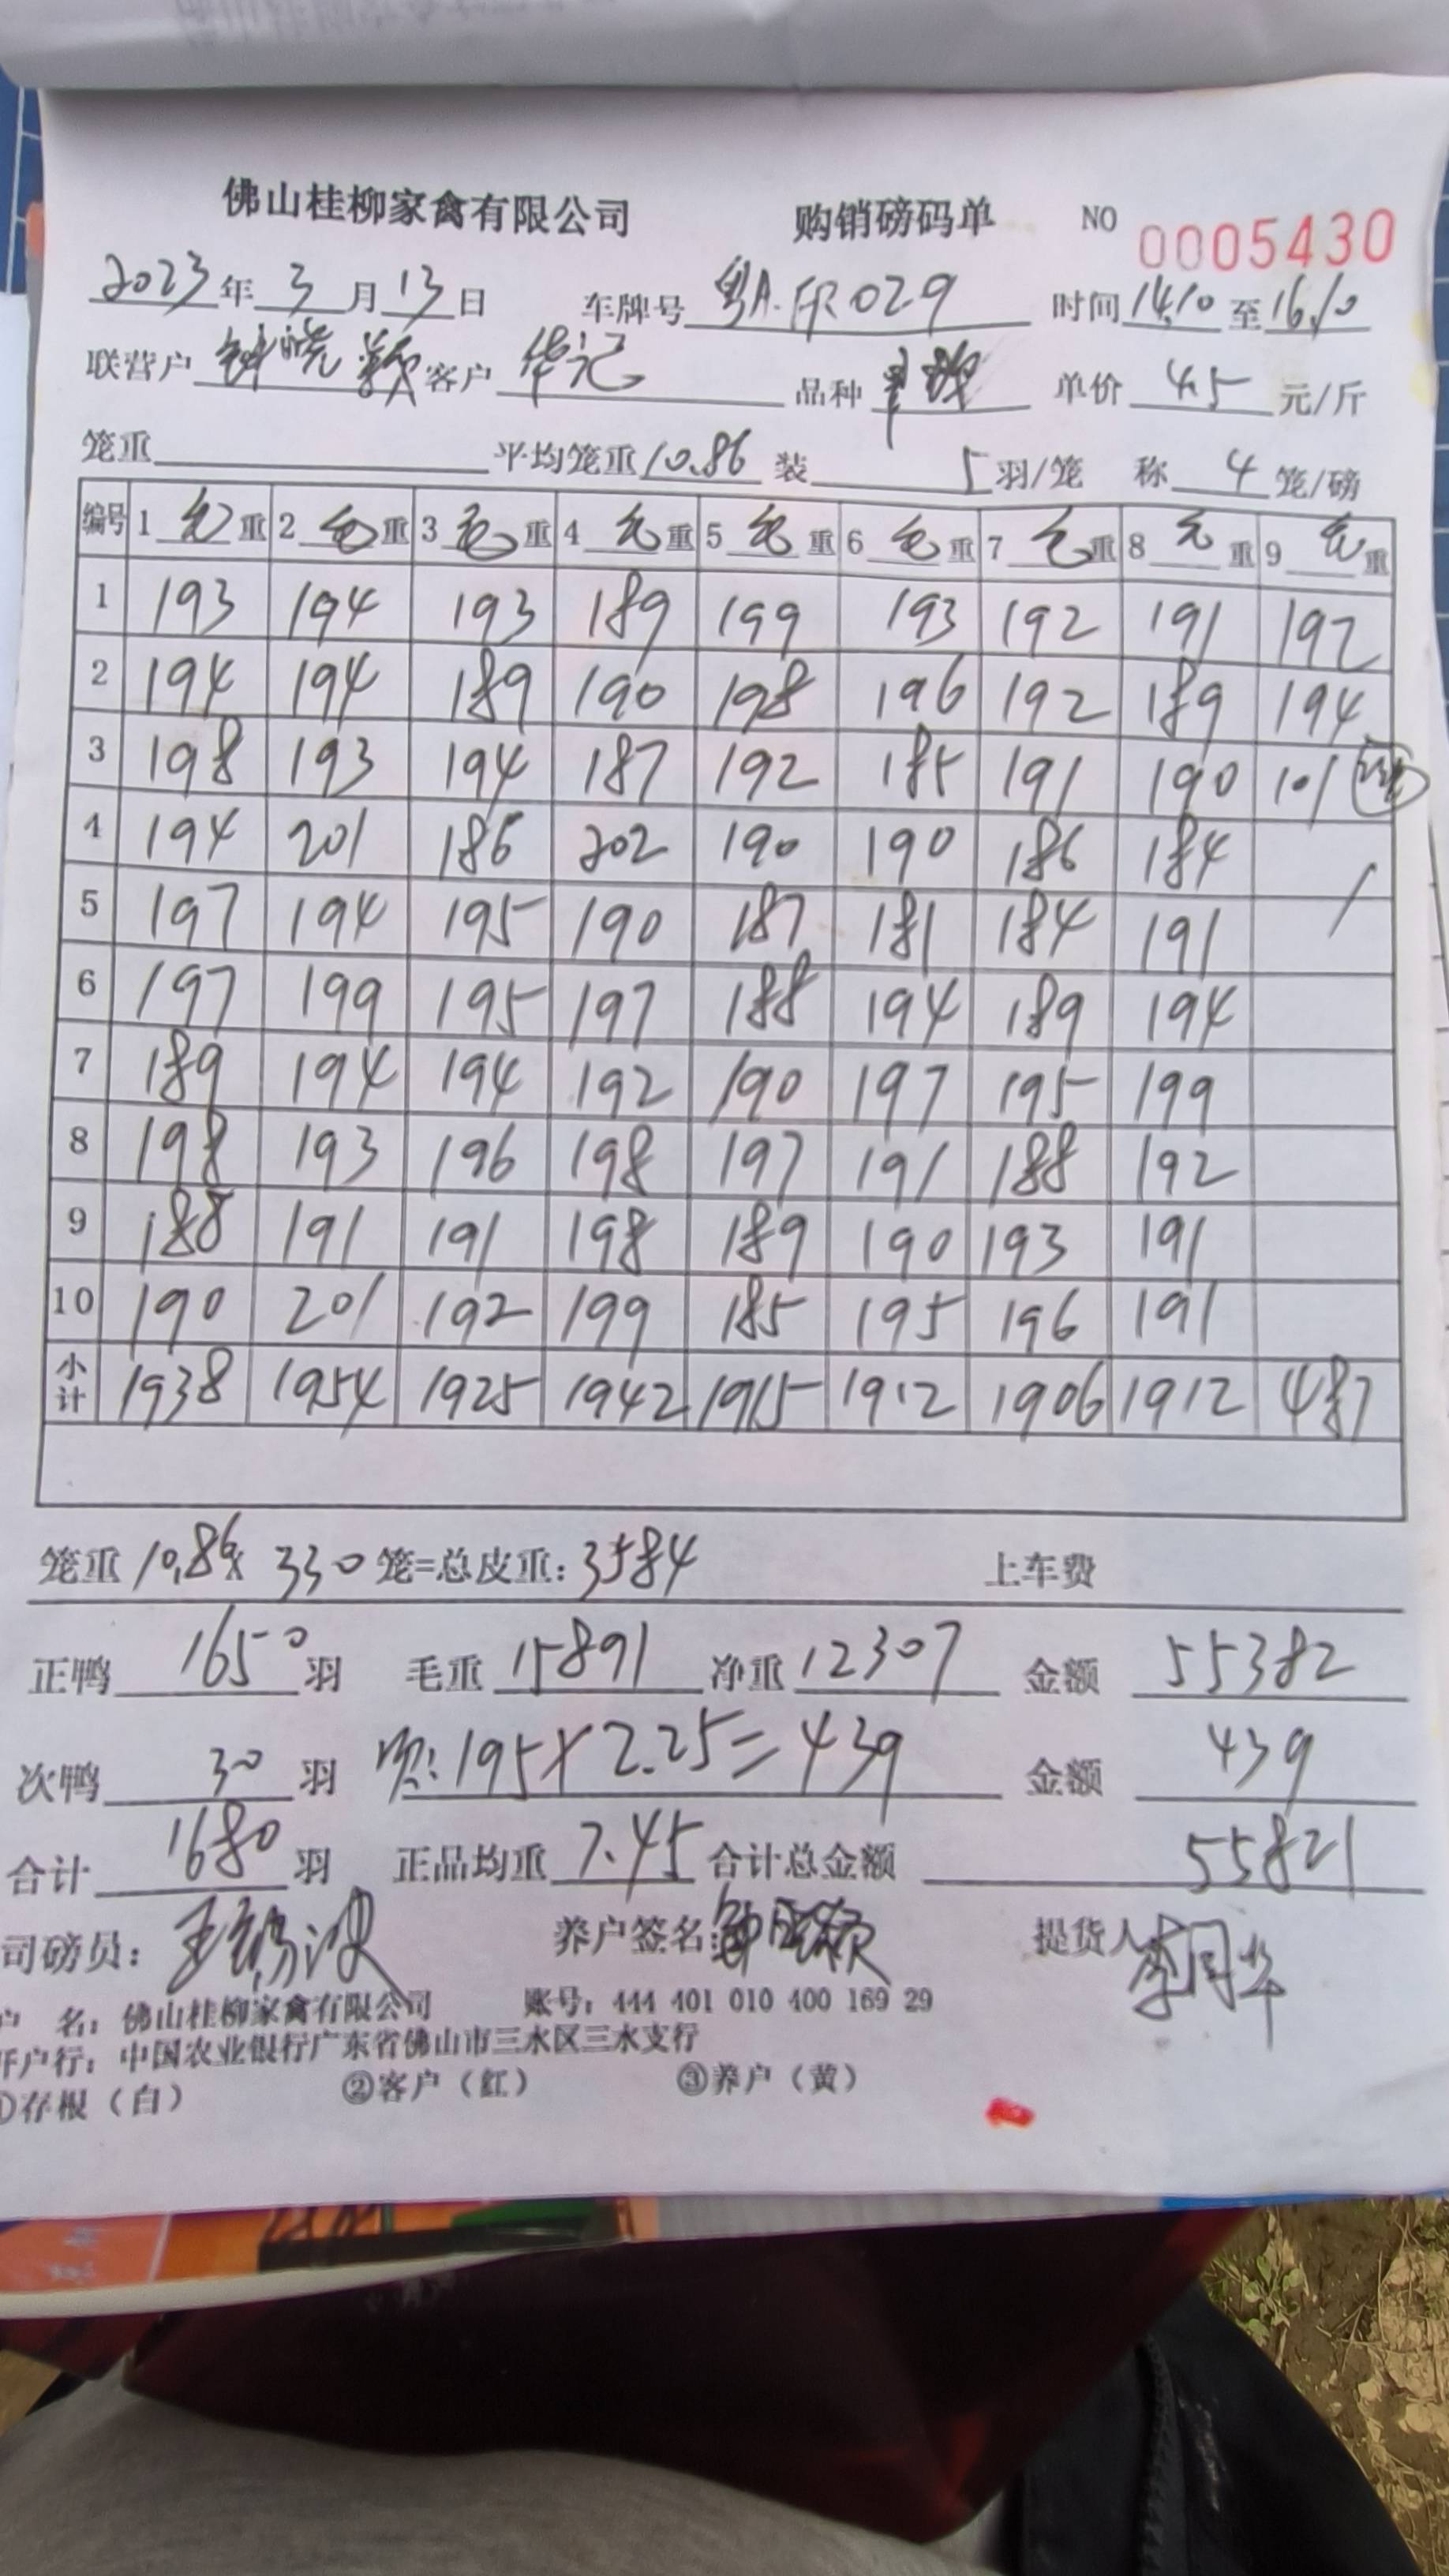 佛山桂柳家禽有限公司 购销磅码单 NO 0005430
2023年3月13日 车牌号 粤A.FR029 时间14.10至16.10
联营户 客户 华记 品种 单价 4.5 元/斤
笼重 平均笼重10.86 装 5羽/笼 称 4 笼/磅
编号 1毛重 2毛重 3毛重 4毛重 5毛重 6毛重 7毛重 8毛重 9毛重
1 193 194 193 189 199 193 192 191 192
2 194 194 189 190 198 196 192 189 194
3 198 193 194 187 192 185 191 190 101
4 194 201 186 202 190 190 186 184
5 197 194 195 190 187 181 184 191
6 197 199 195 197 188 194 189 194
7 189 194 194 192 190 197 195 199
8 198 193 196 198 197 191 188 192
9 188 191 191 198 189 190 193 191
10 190 201 192 199 185 195 196 191
小计 1938 1954 1925 1942 1915 1912 1906 1912 487
笼重 10.86x 330 笼=总皮重:3584 上车费
正鸭 1650 羽 毛重 15891 净重 12307 金额 55382
次鸭 30 羽 次:195x2.25=439 金额 439
合计 1680 羽 正品均重 7.45 合计总金额 55821
司磅员: 养户签名: 提货人
户 名: 佛山桂柳家禽有限公司 账号: 444 401 010 400 169 29
开户行: 中国农业银行广东省佛山市三水区三水支行
①存根(白) ②客户(红) ③养户(黄)